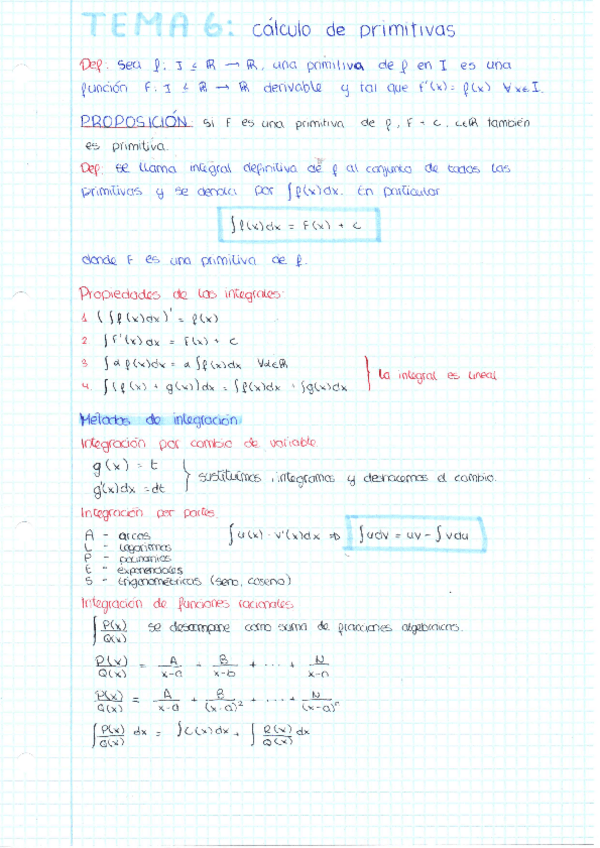 TEMA 6: cálculo de primitivas
Def: Sea f: I ⊆ ℝ → ℝ, una primitiva de f en I es una
función F: I ⊆ ℝ → ℝ derivable y tal que F'(x) = f(x) ∀x∈I.
PROPOSICIÓN: Si F es una primitiva de f, F + c, c∈ℝ también
es primitiva.
Def: se llama integral definitiva de f al conjunto de todas las
primitivas y se denota por ∫f(x)dx. En particular
∫f(x)dx = F(x) + c
donde F es una primitiva de f.
Propiedades de las integrales:
1. (∫f(x)dx)' = f(x)
2. ∫F'(x)dx = F(x) + c
3. ∫α f(x)dx = α ∫f(x)dx ∀α∈ℝ
4. ∫(f(x) + g(x))dx = ∫f(x)dx + ∫g(x)dx
la integral es lineal
Métodos de integración
Integración por cambio de variable
g(x) = t
g'(x)dx = dt
sustituimos, integramos y deshacemos el cambio.
Integración por partes
A - arcos
L - logaritmos
P - polinomios
E - exponenciales
S - trigonométricas (seno, coseno)
∫u(x) · v'(x)dx ⇒ ∫udv = uv - ∫vdu
Integración de funciones racionales
∫P(x)/Q(x) se descompone como suma de fracciones algebraicas.
P(x)/Q(x) = A/(x-a) + B/(x-b) + ... + N/(x-n)
P(x)/Q(x) = A/(x-a) + B/(x-a)² + ... + N/(x-a)ⁿ
∫P(x)/Q(x) dx = ∫C(x)dx + ∫R(x)/Q(x) dx